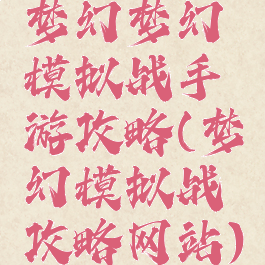 梦幻梦幻
模拟战手
游攻略(梦
幻模拟战
攻略网站)